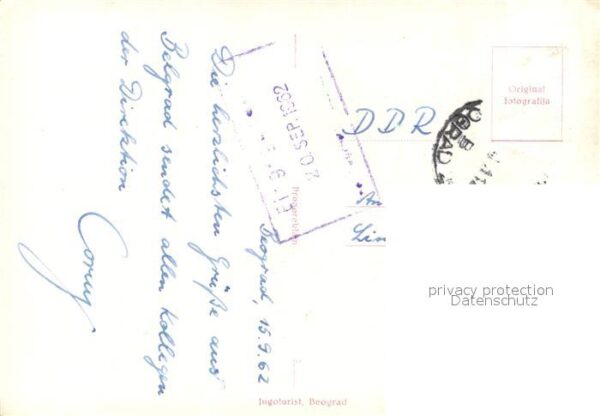 Beograd, 15.9.62
Die herzlichsten Grüße aus
Belgrad sendet allen Kollegen
der Direktion
DDR
An
Original
fotografija
20. SEP. 1962
privacy protection
Datenschutz
Jugoturist, Beograd